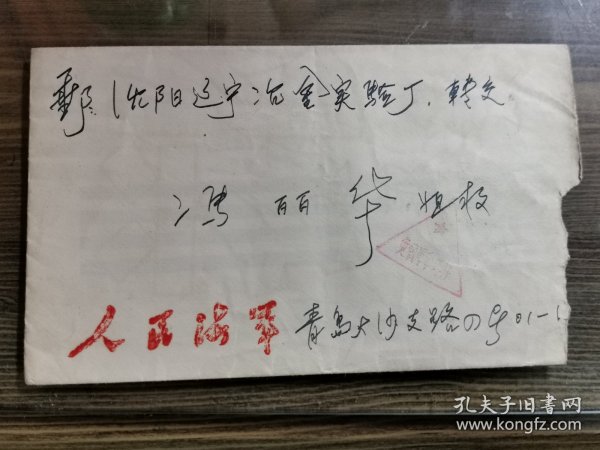 沈阳辽宁冶金实验厂.转交
冯丽华 姐收
人民海军 青岛大沙支路四号01-1
孔夫子旧书网
www.kongfz.com